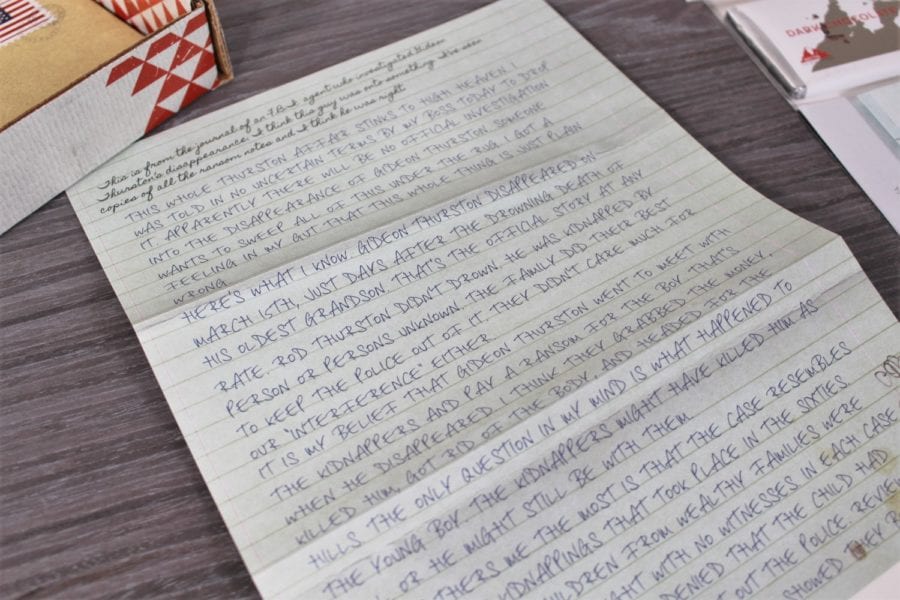 This is from the journal of an F.B.I. agent who investigated Gideon
Thurston's disappearance. I think this guy was onto something. I've seen
copies of all the ransom notes and I think he was right.
THIS WHOLE THURSTON AFFAIR STINKS TO HIGH HEAVEN. I
WAS TOLD IN NO UNCERTAIN TERMS BY MY BOSS TODAY TO DROP
IT. APPARENTLY THERE WILL BE NO OFFICIAL INVESTIGATION
INTO THE DISAPPEARANCE OF GIDEON THURSTON. SOMEONE
WANTS TO SWEEP ALL OF THIS UNDER THE RUG. I GOT A
FEELING IN MY GUT THAT THIS WHOLE THING IS JUST PLAIN
WRONG.
HERE'S WHAT I KNOW. GIDEON THURSTON DISAPPEARED ON
MARCH 15TH, JUST DAYS AFTER THE DROWNING DEATH OF
HIS OLDEST GRANDSON. THAT'S THE OFFICIAL STORY AT ANY
RATE. ROD THURSTON DIDN'T DROWN. HE WAS KIDNAPPED BY
PERSON OR PERSONS UNKNOWN. THE FAMILY DID THEIR BEST
TO KEEP THE POLICE OUT OF IT. THEY DIDN'T CARE MUCH FOR
OUR "INTERFERENCE" EITHER.
IT IS MY BELIEF THAT GIDEON THURSTON WENT TO MEET WITH
THE KIDNAPPERS AND PAY A RANSOM FOR THE BOY. THAT'S
WHEN HE DISAPPEARED. I THINK THEY GRABBED THE MONEY,
KILLED HIM, GOT RID OF THE BODY, AND HEADED FOR THE
HILLS. THE ONLY QUESTION IN MY MIND IS WHAT HAPPENED TO
THE YOUNG BOY. THE KIDNAPPERS MIGHT HAVE KILLED HIM AS
OR HE MIGHT STILL BE WITH THEM.
THERS ME THE MOST IS THAT THE CASE RESEMBLES
KIDNAPPINGS THAT TOOK PLACE IN THE SIXTIES
CHILDREN FROM WEALTHY FAMILIES WERE
IGHT WITH NO WITNESSES. IN EACH CASE
DENIED THAT THE CHILD HAD
OUT THE POLICE. REVIEW
SHOWED THEY
DARK